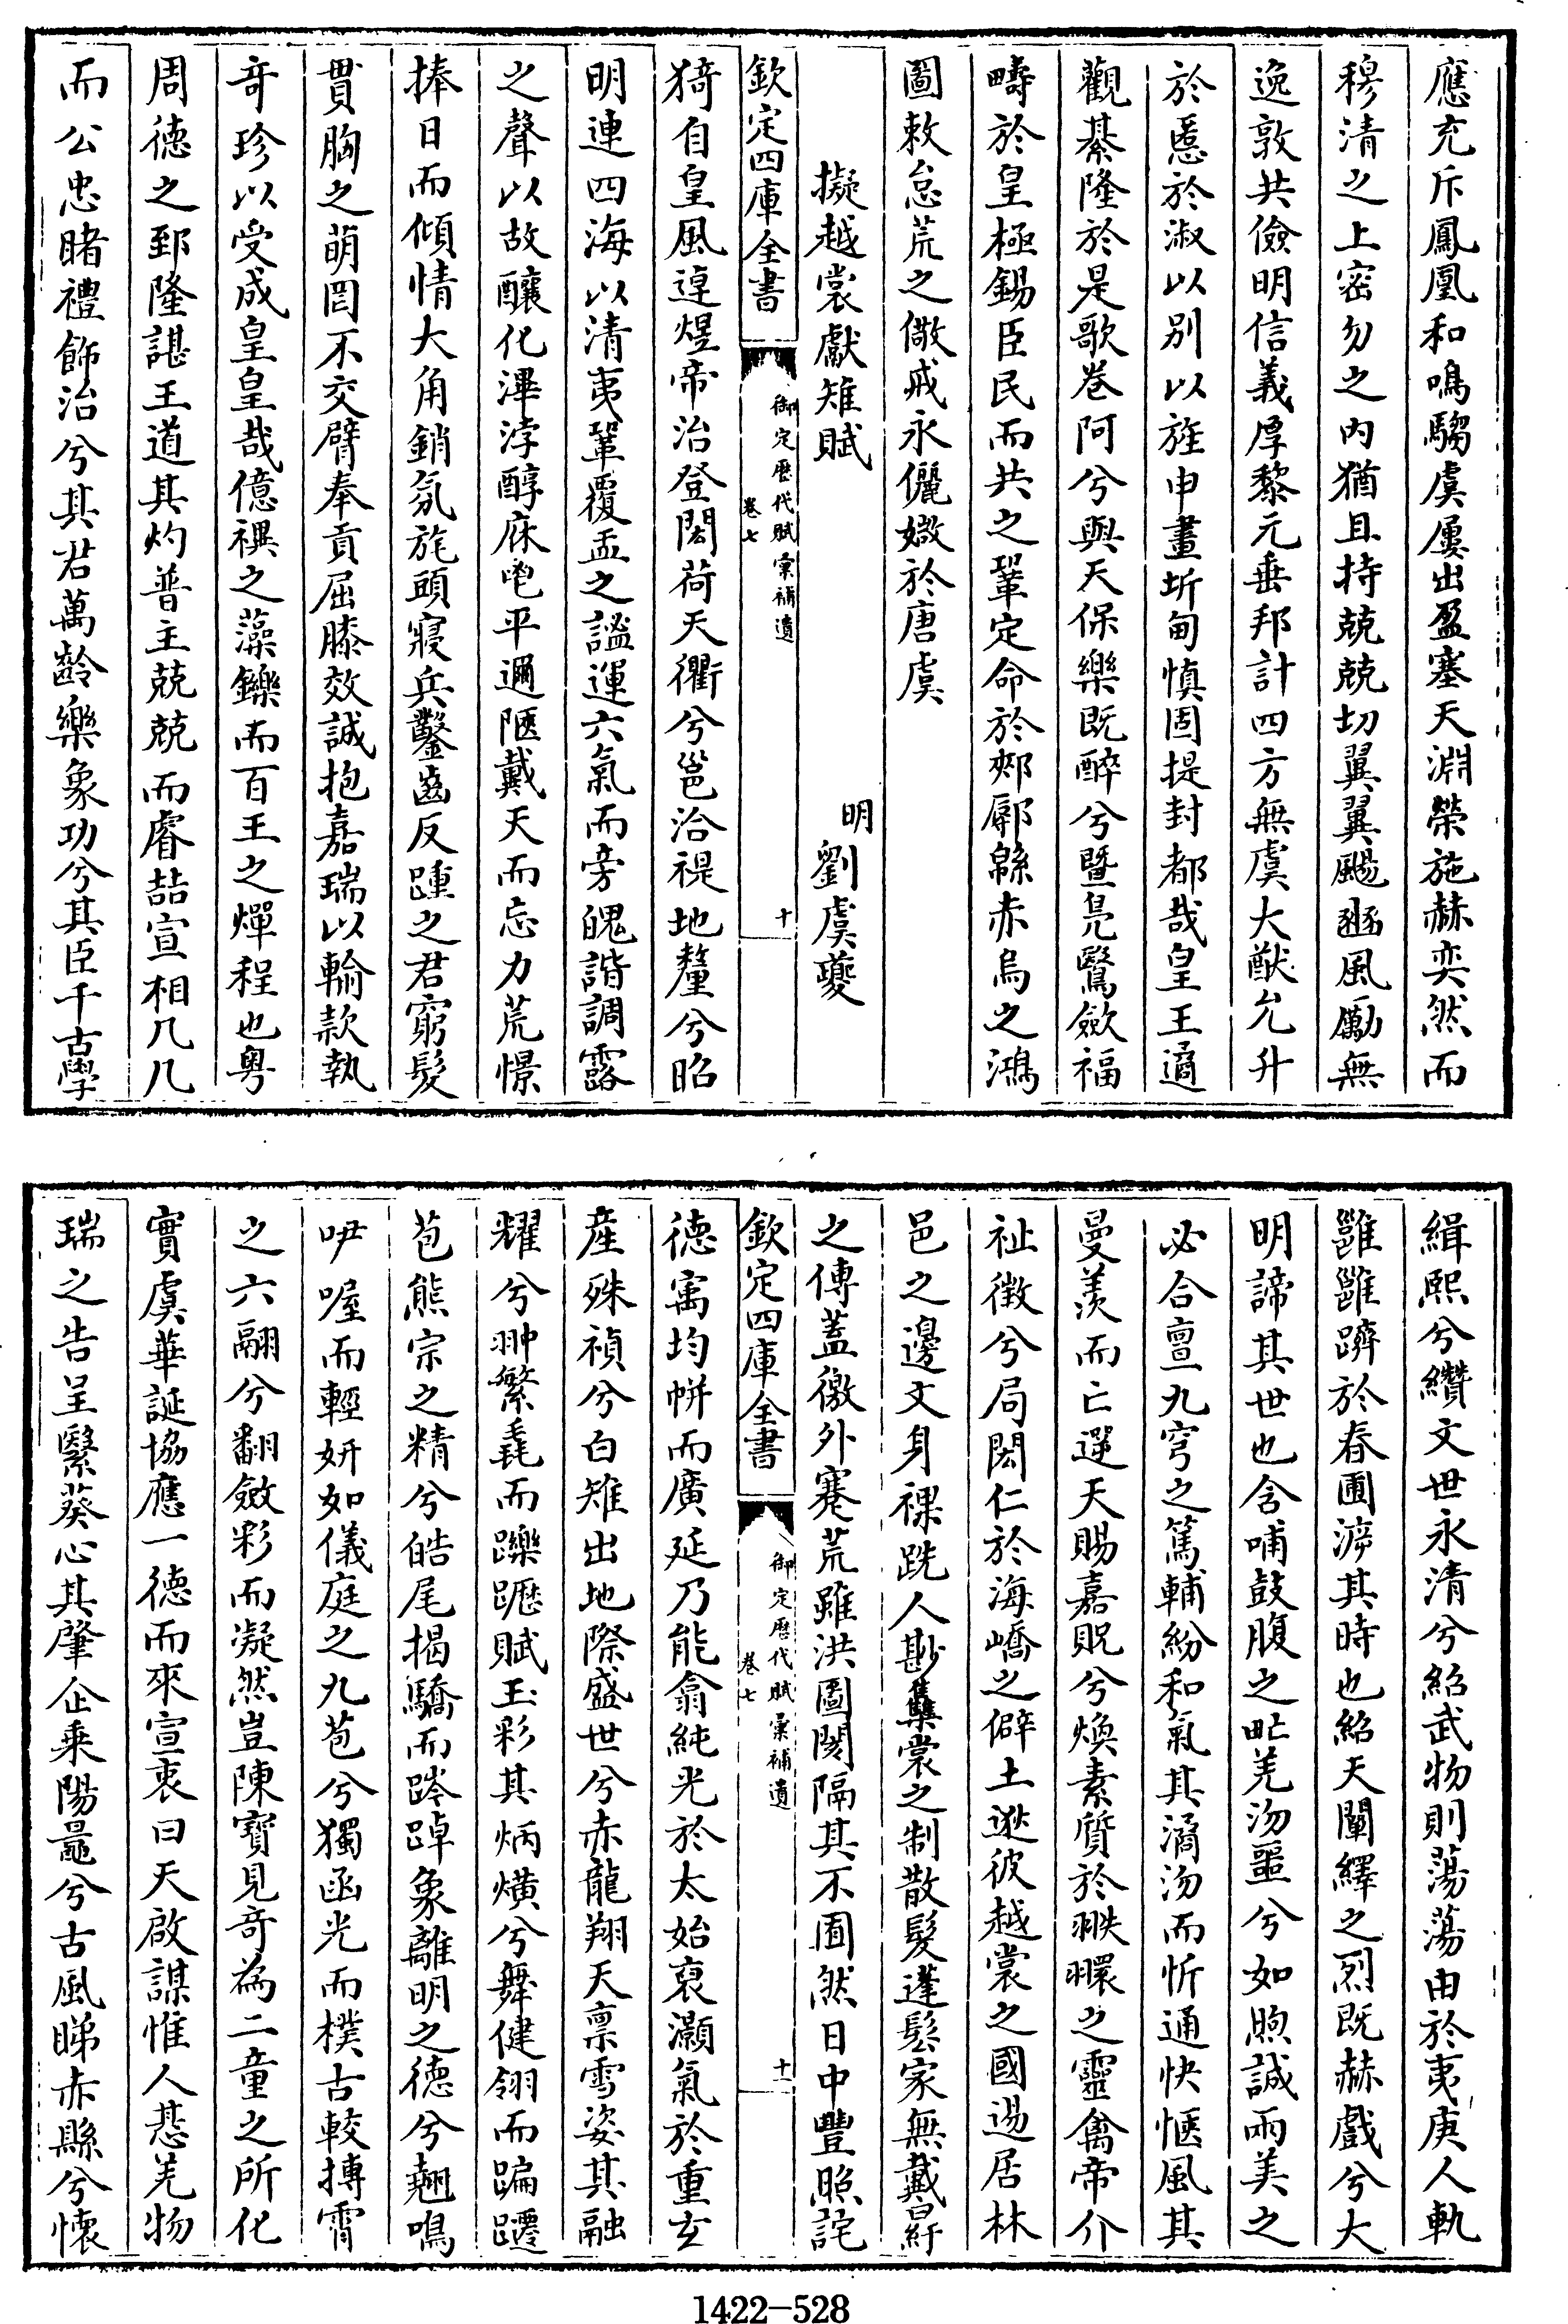 應充斥鳳凰和鳴騶虞屢出盈塞天淵榮施赫奕然而
穆清之上密勿之內猶且持兢兢切翼翼颺豳風勵無
逸敦共儉明信義厚黎元垂邦計四方無虞大猷允升
於慝於淑以别以旌申畫圻甸慎固提封都哉皇王遹
觀綦隆於是歌卷阿兮與天保樂既醉兮暨鳧鷖斂福
疇於皇極錫臣民而共之鞏定命於郟鄏緜赤烏之鴻
圖敕怠荒之儆戒永儷媺於唐虞
擬越裳獻雉賦 明劉虞夔
欽定四庫全書 御定歷代賦彙補遺 卷七 十
猗自皇風逴煜帝治登閎荷天衢兮邕洽禔地釐兮昭
明連四海以清夷鞏覆盂之謐運六氣而旁魄諧調露
之聲以故釀化渾浡醇庥鬯平邇陬戴天而忘力荒憬
捧日而傾情大角銷氛旄頭寢兵鑿齒反踵之君窮髮
貫胸之萌罔不交臂奉貢屈膝效誠抱嘉瑞以輸款執
奇珍以受成皇皇哉億禩之藻鑠而百王之燀程也粤
周徳之郅隆諶王道其灼普主兢兢而睿喆宣相几几
而公忠睹禮飾治兮其君萬齡樂象功兮其臣千古學
緝熙兮纘文世永清兮紹武物則蕩蕩由於夷庚人軌
雝雝躋於春圃渟其時也紹天闡繹之烈既赫戲兮大
明諦其世也含哺鼓腹之甿羌沕噩兮如煦誠兩美之
必合亶九穹之篤輔紛和氣其潏沕而忻通快愜風其
曼羨而亡遌天賜嘉貺兮煥素質於翐翾之靈禽帝介
祉徵兮局閎仁於海嶠之僻土逖彼越裳之國逿居林
邑之邊文身裸跣人尠集裳之制散髮蓬鬆家無戴冔
之傳蓋徼外蹇荒雖洪圖閡隔其不囿然日中豐照詫
欽定四庫全書 御定歷代賦彙補遺 卷七 十一
德寓均帲而廣延乃能翕純光於太始裒灝氣於重玄
産殊禎兮白雉出地際盛世兮赤龍翔天禀雪姿其融
耀兮翀繁毳而躒躒賦玉彩其炳熿兮舞健翎而蹁躚
苞熊宗之精兮皓尾揭驕而踸踔象離明之德兮翹鳴
吚喔而輕妍如儀庭之九苞兮獨函光而樸古較摶霄
之六翮兮翻斂彩而凝然豈陳寶見奇為二童之所化
實虞華誕協應一徳而來宣衷曰天啟謀惟人惎羌物
瑞之告呈繄葵心其肇企乗陽鼂兮古風睇赤縣兮懷
1422-528